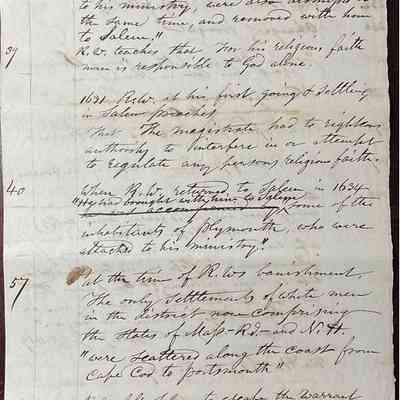 to his ministry, were also
the same time, and removed with him
to Salem."
39
R.W. teaches that for his religious faith
man is responsible to God alone.
1631 R.W. at his first going & settling
in Salem preaches
that The magistrate had no righteous
authority to interfere in or attempt
to regulate any persons religious faith.
40
When R.W. returned to Salem in 1634
"He had brought with him to Salem
some of the
inhabitants of Plymouth, who were
attached to his ministry."
57
at the time of R.Ws banishment
The only settlements of white men
in the district now comprising
the States of Mass- Rd- and N.H.
"were scattered along the coast from
Cape Cod to Portsmouth"
the warrant